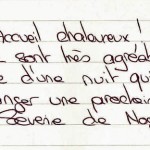 Accueil chaleureux !
sont très agréab
e d'une nuit qui
anger une prochain
Féverie de No